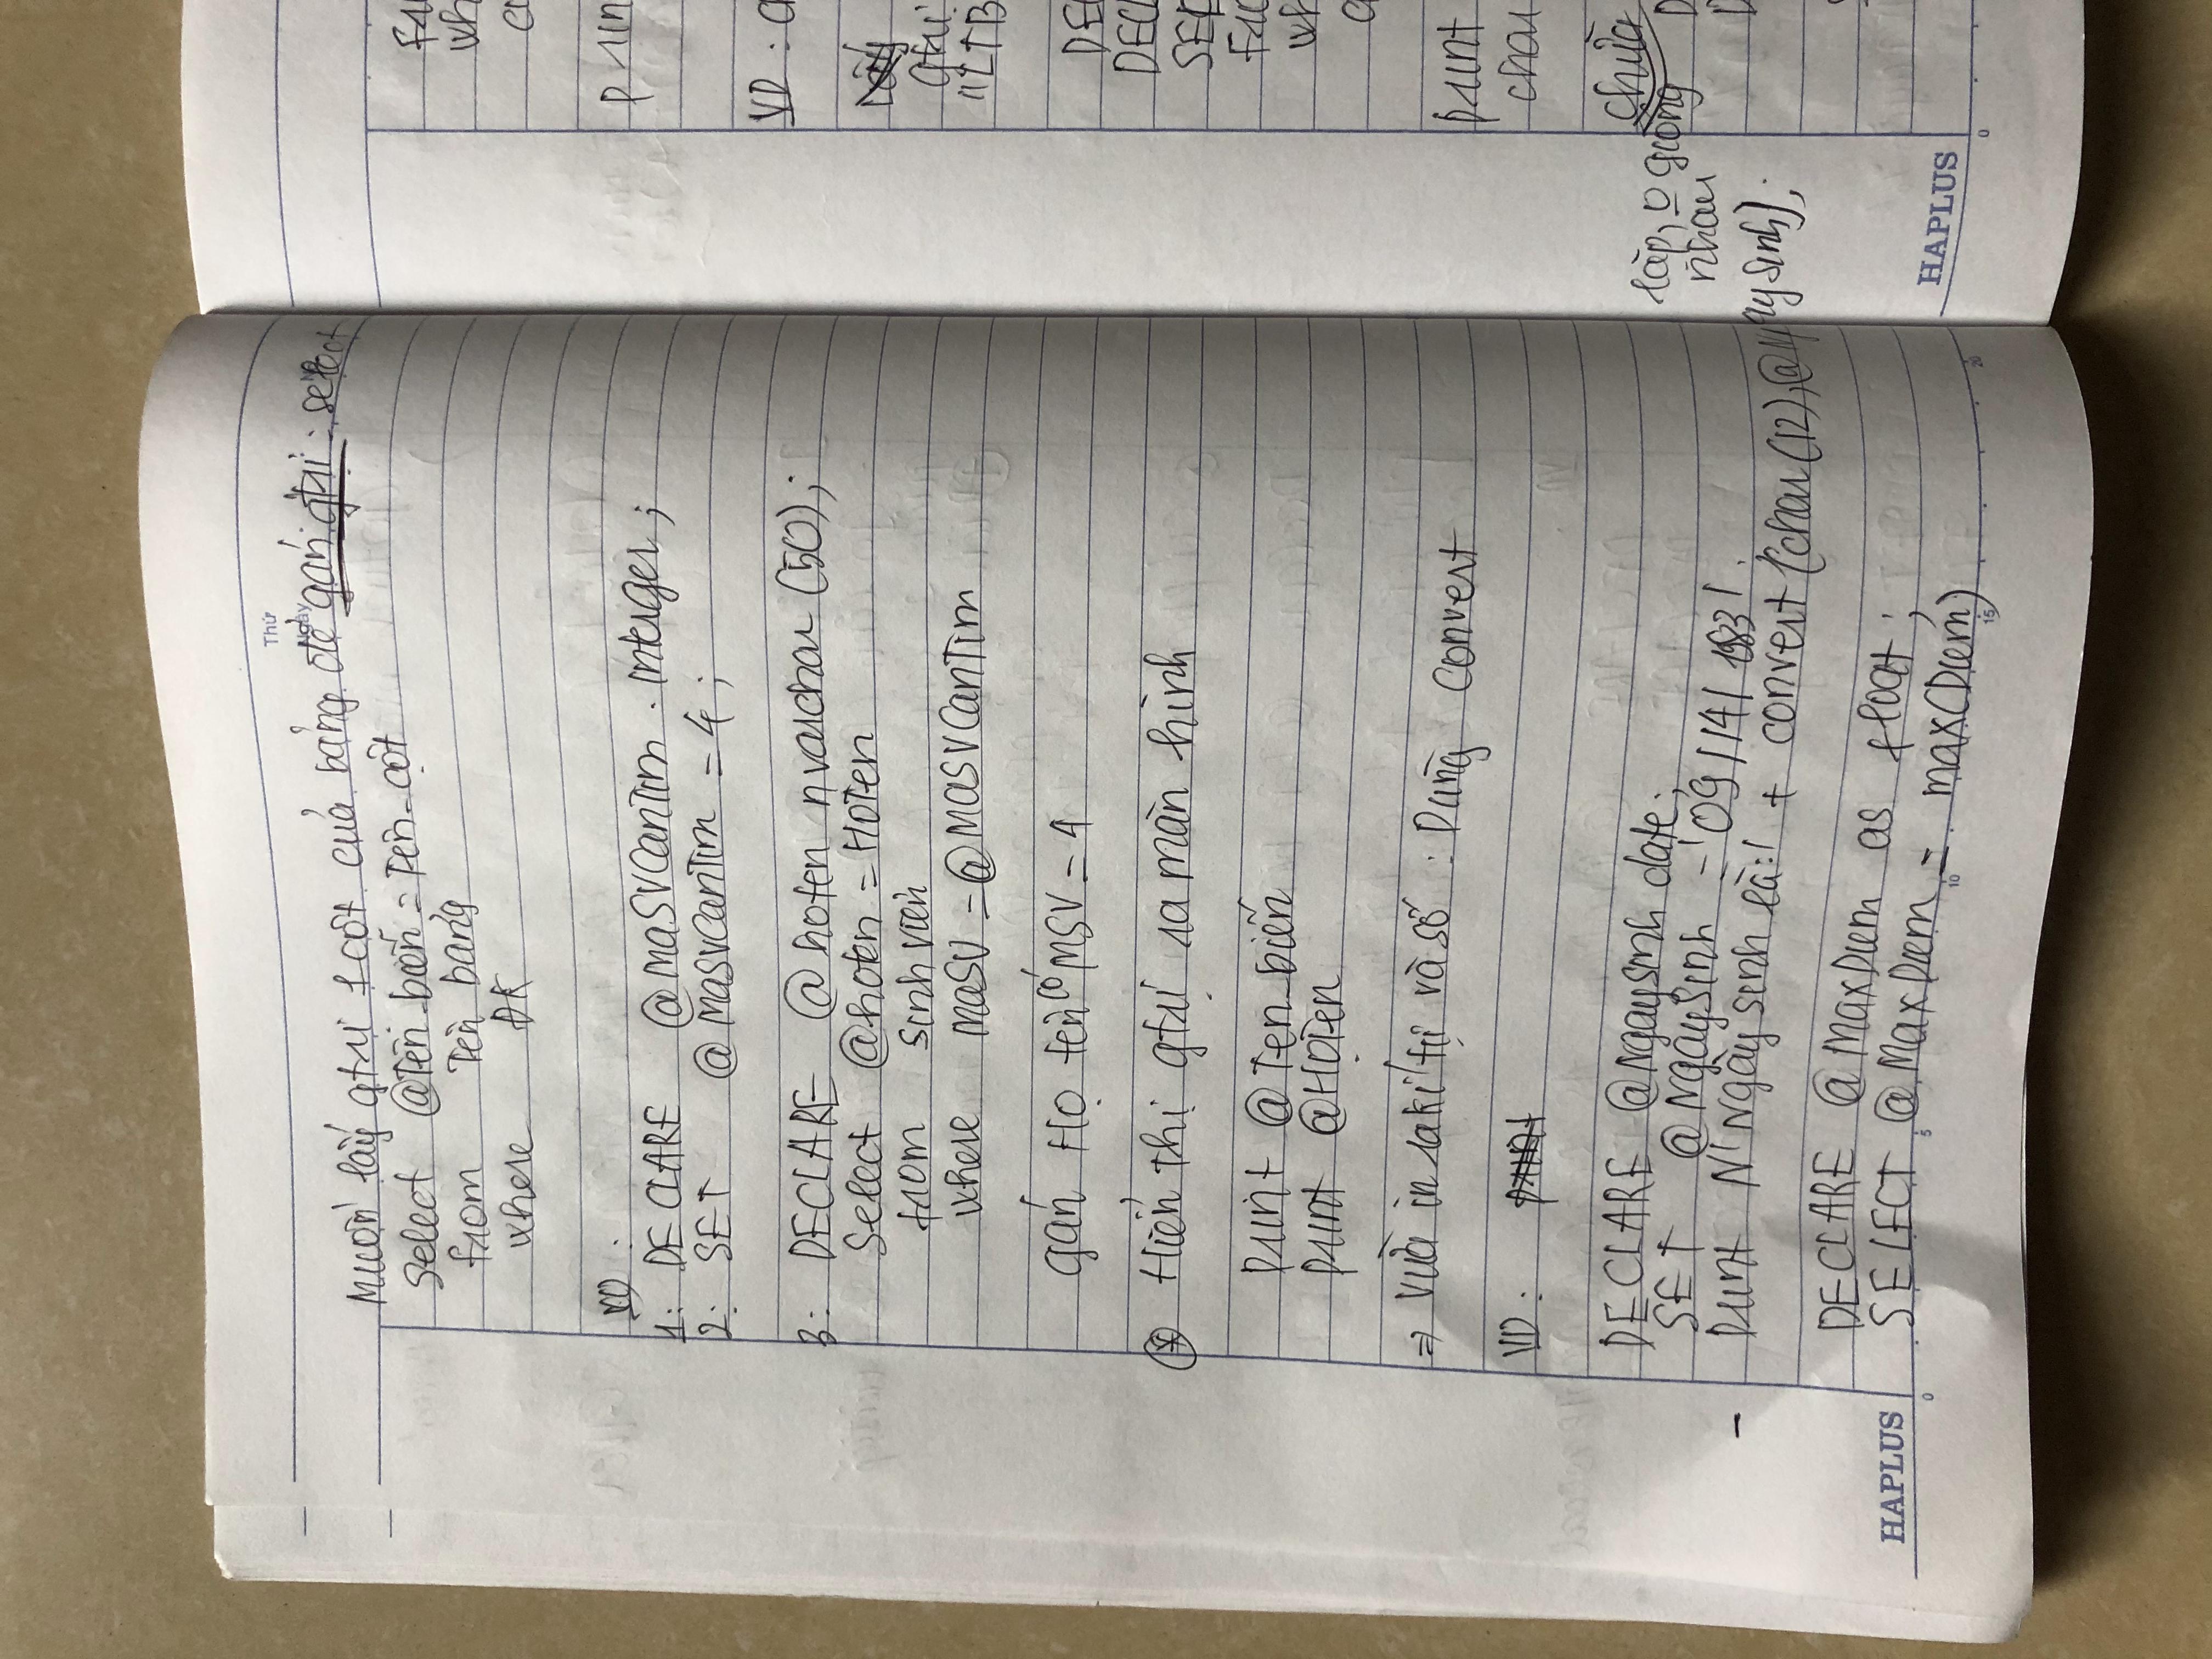 Thứ
Ngày
Muốn lấy gtrị 1 cột của bảng để gán gtrị : select
Select @Tên_biến = Tên_cột
from Tên bảng
where ĐK
VD :
1: DECLARE @MaSVCanTim . interger ;
2: SET @MaSVCanTim = 4 ;
3: DECLARE @hoten nvarchar (50) ;
Select @hoten = HoTen
from Sinh viên
where MaSV = @MaSVCanTim
gán Họ tên có MSV = 4
* Hiển thị gtrị ra màn hình
print @Ten_biến
print @HọTên
⇒ Vừa in ra kí tự và số : Dùng convert
VD : print
DECLARE @Ngaysinh date;
SET @Ngaysinh = '09/14/1983'.
print N'Ngày sinh là:' + convert (char (12), @Ngaysinh);
DECLARE @MaxDiem as float ;
SELECT @MaxDiem = max(Diem)
HAPLUS
0 5 10 15 20
wh
VD :
Lấy
gtrị
"LTB
DECL
wh
print
char
Chữa
lặp, 0 giống
nhau
HAPLUS
0